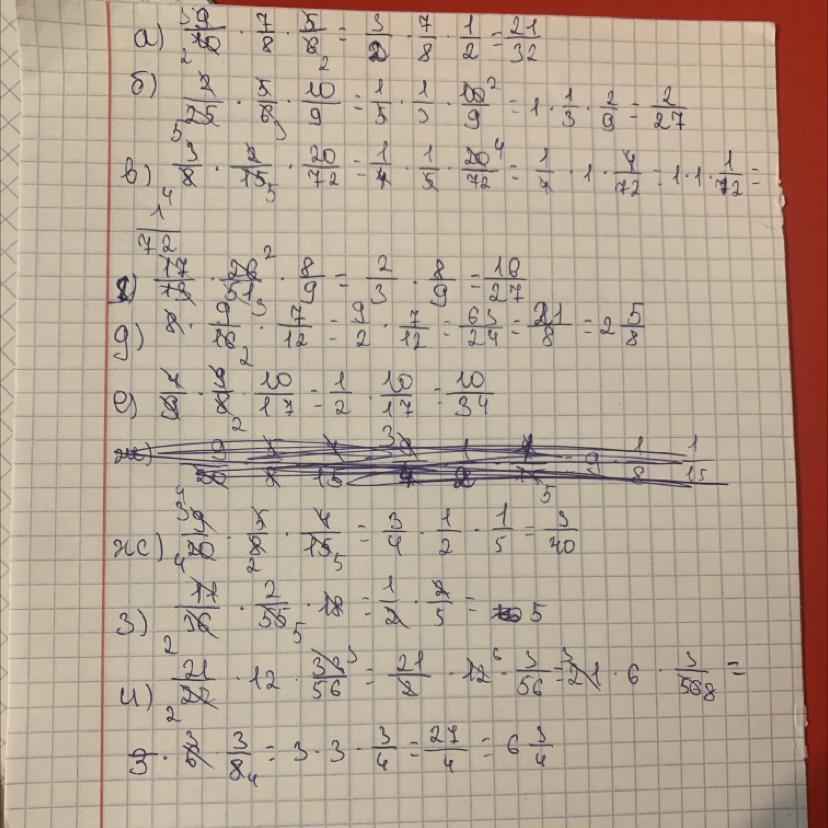 а) 9/10 · 7/8 · 5/6 = 3/2 · 7/8 · 1/2 = 21/32
б) 2/25 · 5/6 · 10/9 = 1/5 · 1/3 · 10/9 = 1 · 1/3 · 2/9 = 2/27
в) 3/8 · 2/15 · 20/72 = 1/4 · 1/5 · 20/72 = 1/4 · 1 · 4/72 = 1 · 1 · 1/72 =
1/72
г) 17/78 · 26/51 · 8/9 = 2/3 · 8/9 = 16/27
д) 8 · 9/16 · 7/12 = 9/2 · 7/12 = 63/24 = 21/8 = 2 5/8
е) 4/9 · 9/8 · 10/17 = 1/2 · 10/17 = 10/34
ж) 9/20 · 5/8 · 4/15 = 3/4 · 1/2 · 1/5 = 3/40
з) 2/55 · 18 = 1/2 · 2/5 = 5
и) 21/22 · 12 · 36/56 = 21/2 · 12 · 3/56 = 21 · 6 · 3/56 =
3 · 6 · 3/8 = 3 · 3 · 3/4 = 27/4 = 6 3/4